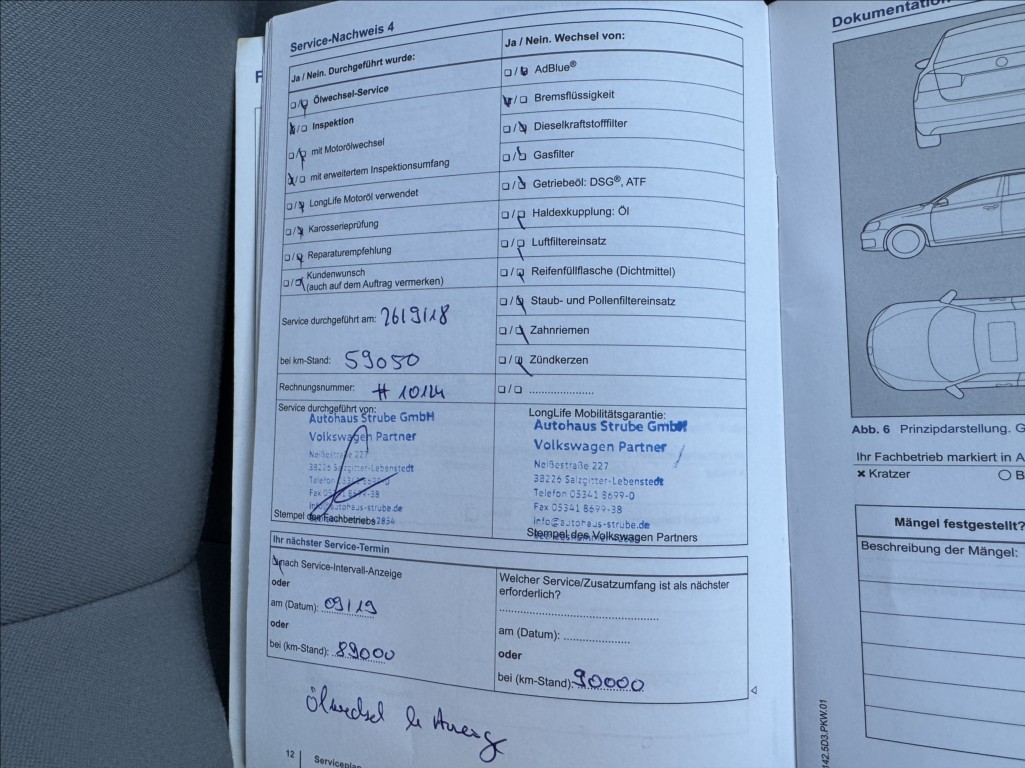 Service-Nachweis 4
Ja / Nein. Durchgeführt wurde:
Ölwechsel-Service
Inspektion
mit Motorölwechsel
mit erweitertem Inspektionsumfang
LongLife Motoröl verwendet
Karosserieprüfung
Reparaturempfehlung
Kundenwunsch
(auch auf dem Auftrag vermerken)
Service durchgeführt am: 26/9/18
bei km-Stand: 59050
Rechnungsnummer: # 10124
Service durchgeführt von:
Autohaus Strube GmbH
Volkswagen Partner
Neißestraße 227
38226 Salzgitter-Lebenstedt
Telefon 05341 8699-0
Fax 05341 8699-38
info@autohaus-strube.de
Stempel des Fachbetriebs
Ja / Nein. Wechsel von:
AdBlue®
Bremsflüssigkeit
Dieselkraftstofffilter
Gasfilter
Getriebeöl: DSG®, ATF
Haldexkupplung: Öl
Luftfiltereinsatz
Reifenfüllflasche (Dichtmittel)
Staub- und Pollenfiltereinsatz
Zahnriemen
Zündkerzen
LongLife Mobilitätsgarantie:
Autohaus Strube GmbH
Volkswagen Partner
Neißestraße 227
38226 Salzgitter-Lebenstedt
Telefon 05341 8699-0
Fax 05341 8699-38
info@autohaus-strube.de
Stempel des Volkswagen Partners
Ihr nächster Service-Termin
nach Service-Intervall-Anzeige
oder
am (Datum): 09/19
oder
bei (km-Stand): 89000
Welcher Service/Zusatzumfang ist als nächster
erforderlich?
am (Datum):
oder
bei (km-Stand): 90000
Ölwechsel
12
Serviceplan
Dokumentation
Abb. 6 Prinzipdarstellung.
Ihr Fachbetrieb markiert in
Kratzer
Mängel festgestellt?
Beschreibung der Mängel:
142.5D3.PKW.01